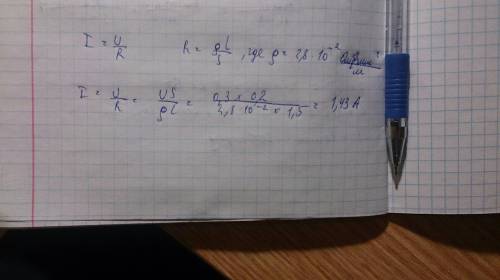 I = U/R R = ρL/S, где ρ = 2,8 · 10⁻² Ом·мм²/м
I = U/R = US/ρL = 0,3 × 0,2 / 2,8 · 10⁻² × 1,5 = 1,43 A